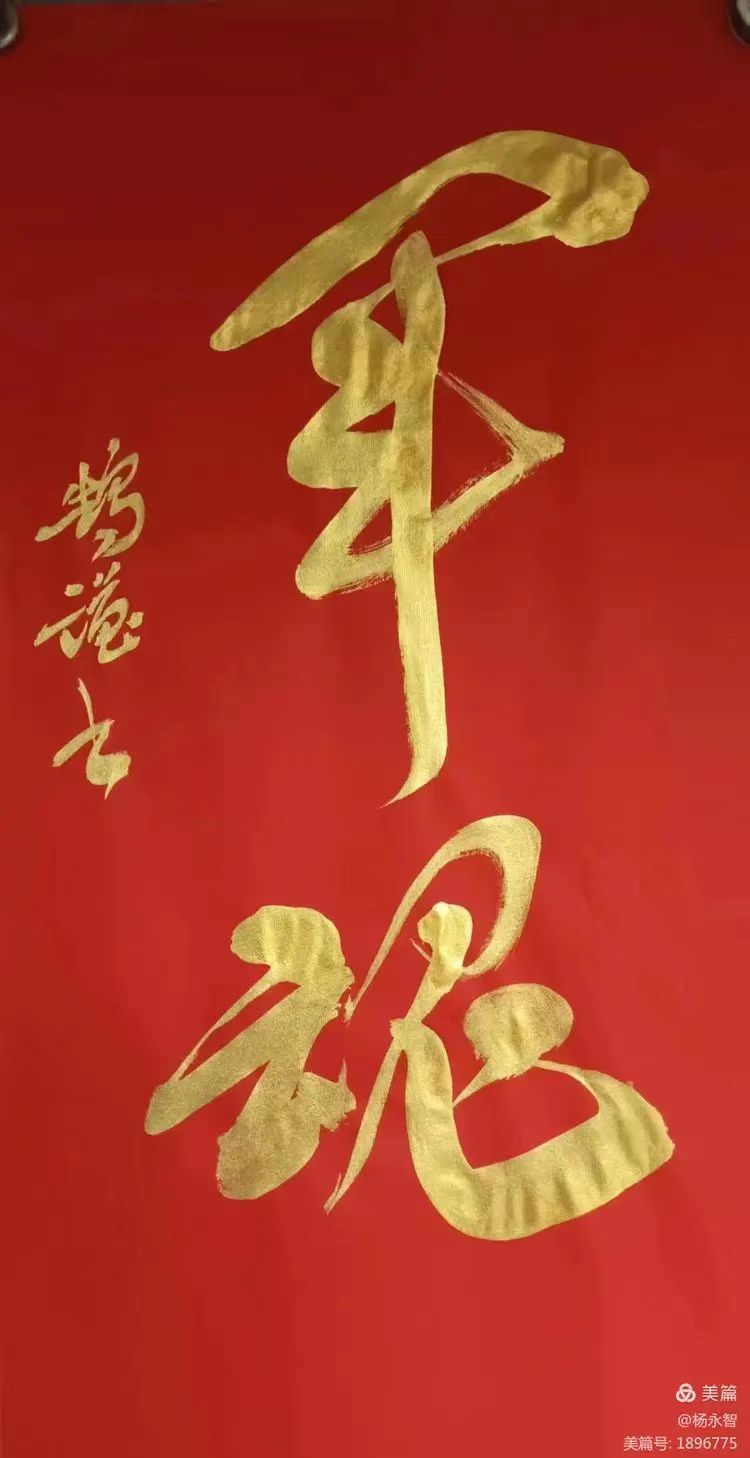 军魂
书
美篇
@杨永智
美篇号: 1896775